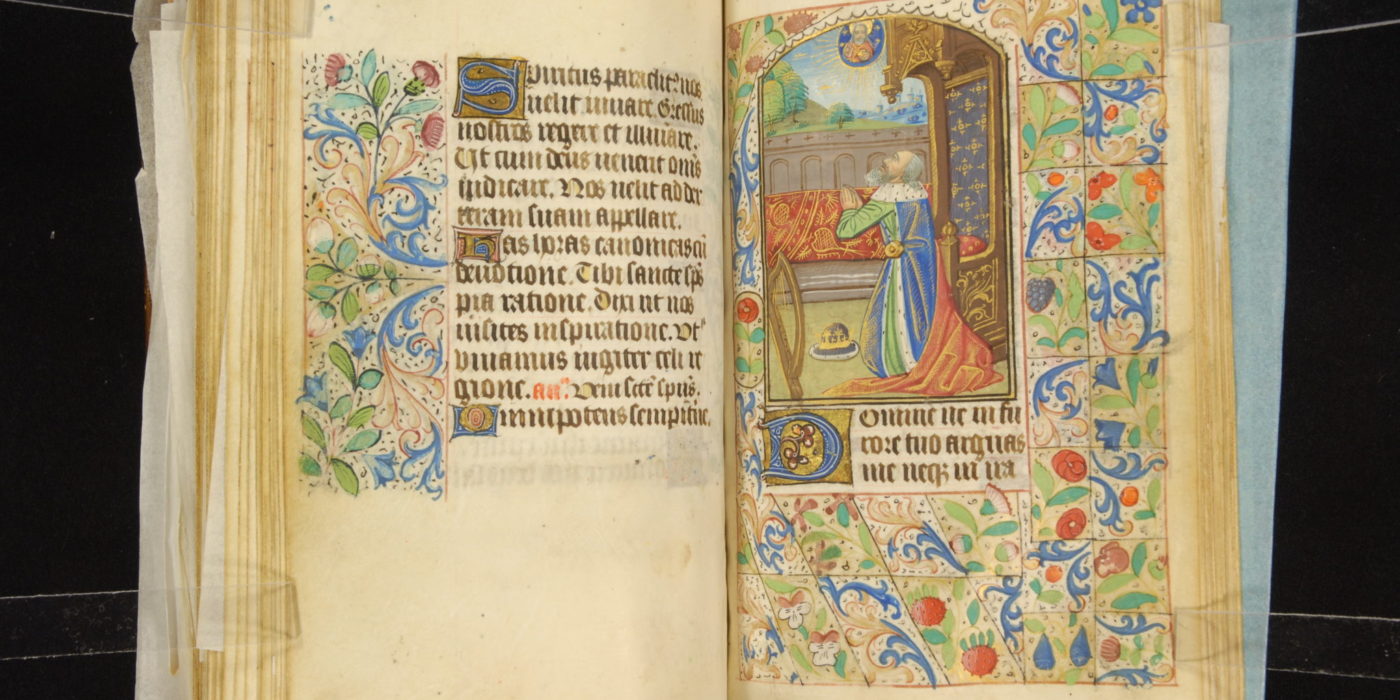 Spiritus paraclit⁹ nos
velit iuuare. Gressus
nostros regere et iuuare.
Ut cum deus uenerit oms
iudicare. Nos uelit ad dex
teram suam appellare.
Has horas canonicas cū
deuotione. Tibi sancte sps̄
pia ratione. Dixi ut nos
uisites inspiratione. Vt
viuamus iugiter celi re
gione. an̄. Veni scē spūs.
Omnipotens sempitne.
Domine ne in fu
rore tuo arguas
me neqꝫ in ira